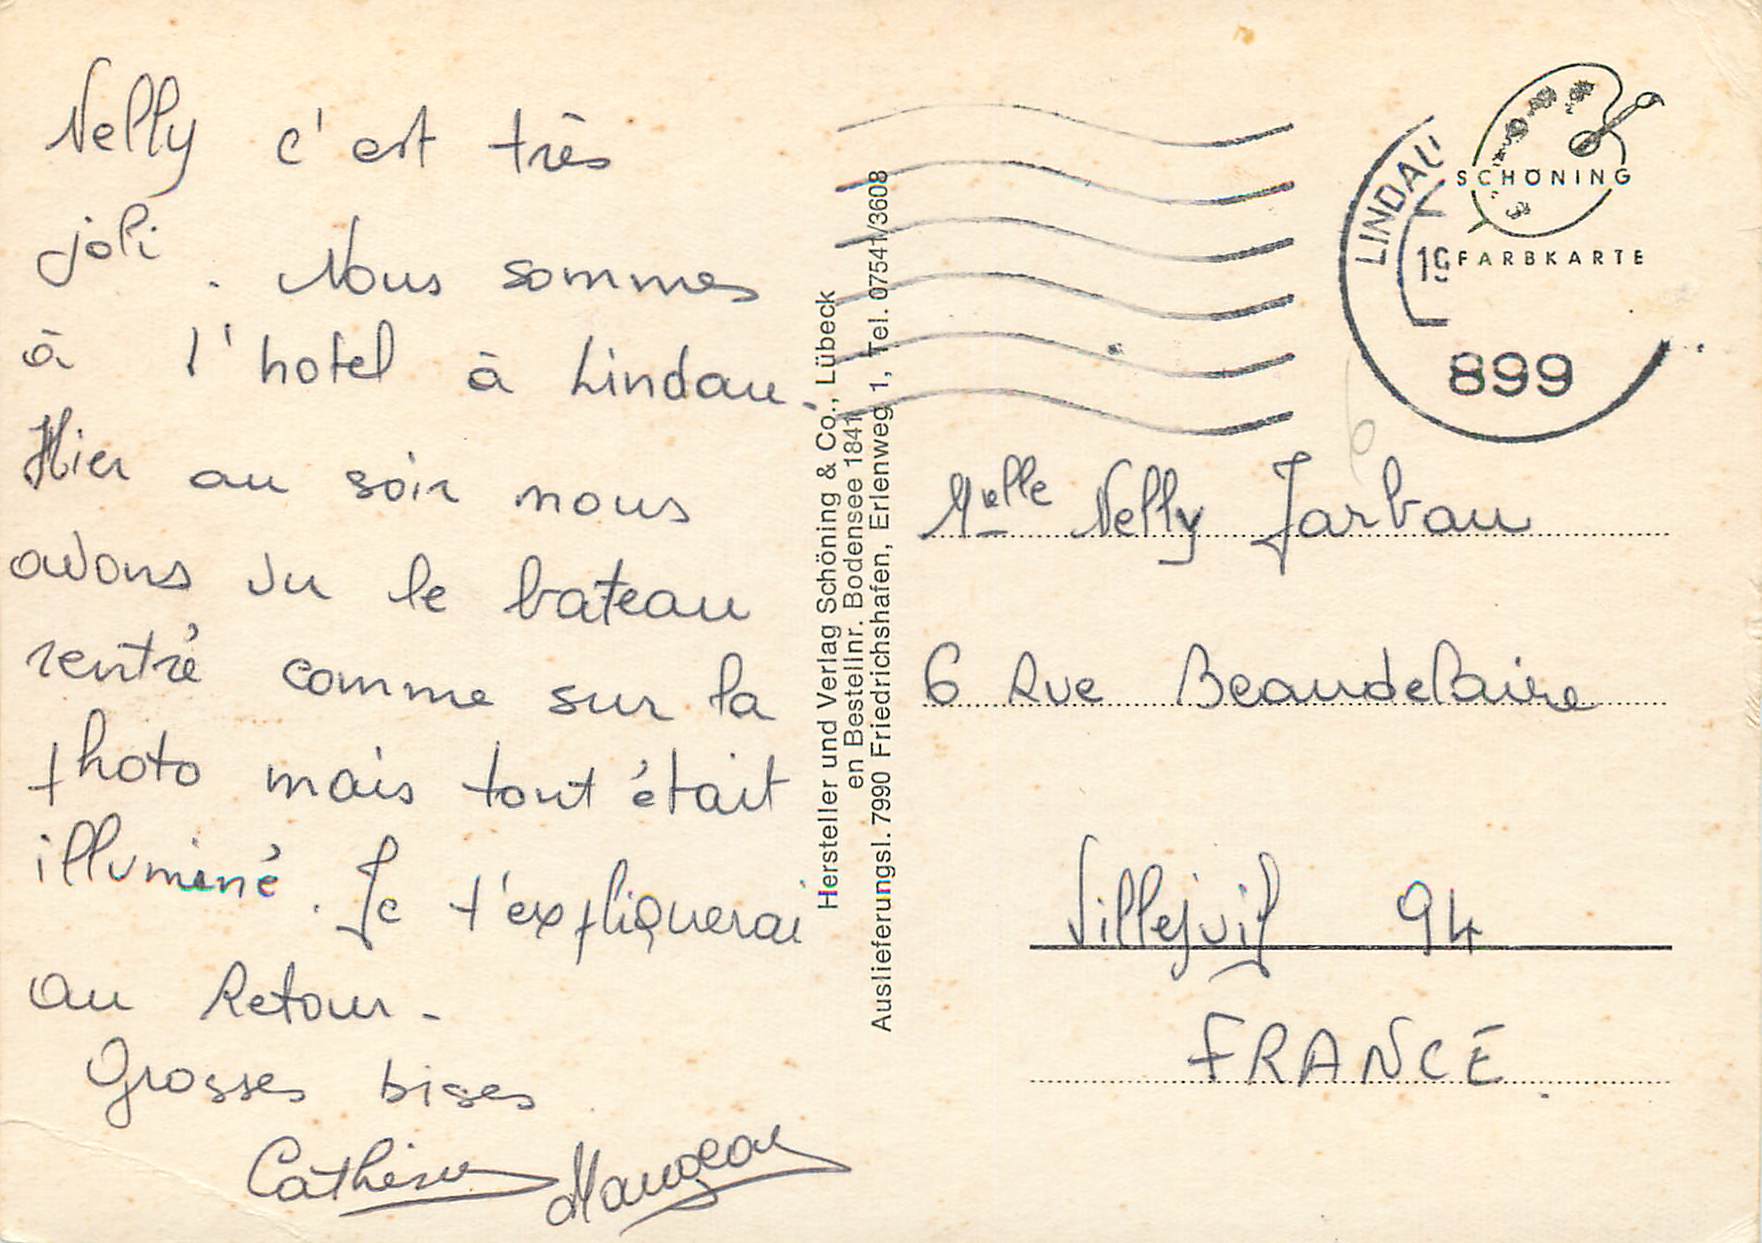 Nelly c'est très
joli. Nous sommes
à l'hotel à Lindau.
Hier au soir nous
avons vu le bateau
rentré comme sur la
photo mais tout était
illuminé. Je t'expliquerai
au Retour -
Grosses bises
Catherine Mangeau
Hersteller und Verlag Schöning & Co., Lübeck
en Bestellnr. Bodensee 1841
Auslieferungsl. 7990 Friedrichshafen, Erlenweg 1, Tel. 07541/3608
LINDAU
19
899
SCHÖNING
FARBKARTE
Melle Nelly Jarbau
6 Rue Beaudelaire
Villejuif 94
FRANCE